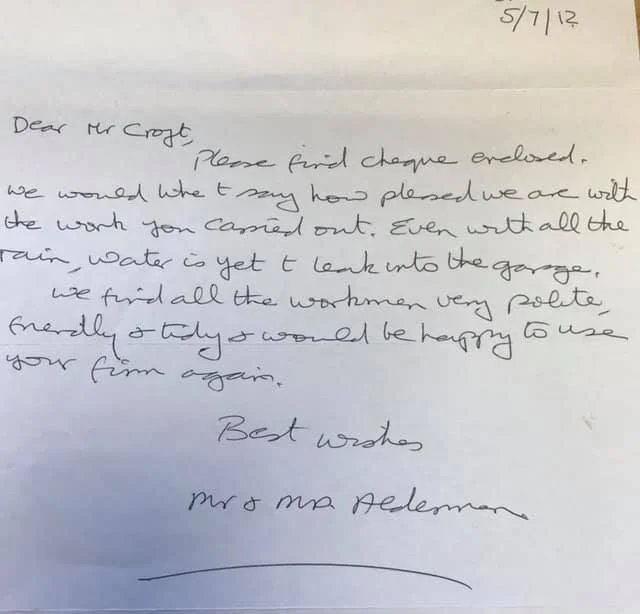 5/7/12
Dear Mr Croft,
Please find cheque enclosed.
We would like t say how plessed we are with
the work you carried out. Even with all the
rain, water is yet t leak into the garage.
We find all the workmen very polite,
friendly & tidy & would be happy to use
your firm again.
Best wishes
Mr & Mrs Alderman.